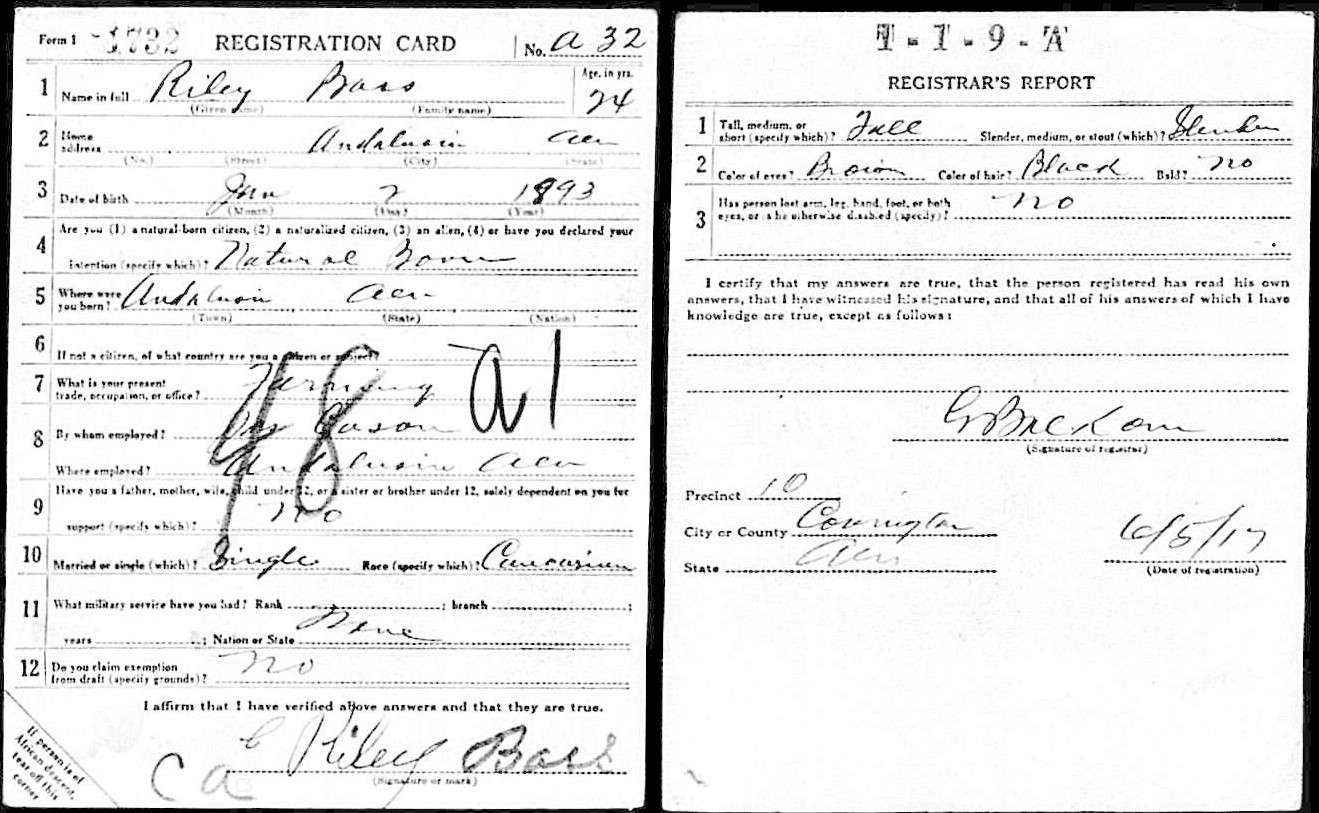 Form 1 1732 REGISTRATION CARD No. A 32
1 Name in full Riley Bass Age, in yrs. 24
(Given name) (Family name)
2 Home address Andalusia Ala
(No.) (Street) (City) (State)
3 Date of birth Jan 2 1893
(Month) (Day) (Year)
4 Are you (1) a natural-born citizen, (2) a naturalized citizen, (3) an alien, (4) or have you declared your
intention (specify which)? Natural Born
5 Where were you born? Andalusia Ala
(Town) (State) (Nation)
6 If not a citizen, of what country are you a citizen or subject?
7 What is your present trade, occupation, or office? Farming
98 A1
8 By whom employed? Cason
Where employed? Andalusia Ala
9 Have you a father, mother, wife, child under 12, or a sister or brother under 12, solely dependent on you for
support (specify which)? no
10 Married or single (which)? Single Race (specify which)? Caucasian
11 What military service have you had? Rank ; branch ;
years ; Nation or State None
12 Do you claim exemption from draft (specify grounds)? No
I affirm that I have verified above answers and that they are true.
Riley Bass
(Signature or mark)
Ca
If person is of
African descent,
tear off this
corner
1-1-9-A
REGISTRAR'S REPORT
1 Tall, medium, or short (specify which)? Tall Slender, medium, or stout (which)? Slender
2 Color of eyes? Brown Color of hair? Black Bald? No
3 Has person lost arm, leg, hand, foot, or both
eyes, or is he otherwise disabled (specify)? no
I certify that my answers are true, that the person registered has read his own
answers, that I have witnessed his signature, and that all of his answers of which I have
knowledge are true, except as follows:
(Signature of registrar)
Precinct 10
City or County Covington
State Ala
6/5/17
(Date of registration)